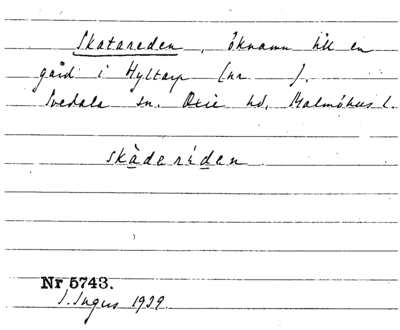 Skatareden, öknamn till en
gård i Hyltarp (nr ).
Svedala sn. Oxie hd, Malmöhus l.
skàderíden
Nr 5743.
J. Ingus 1929.